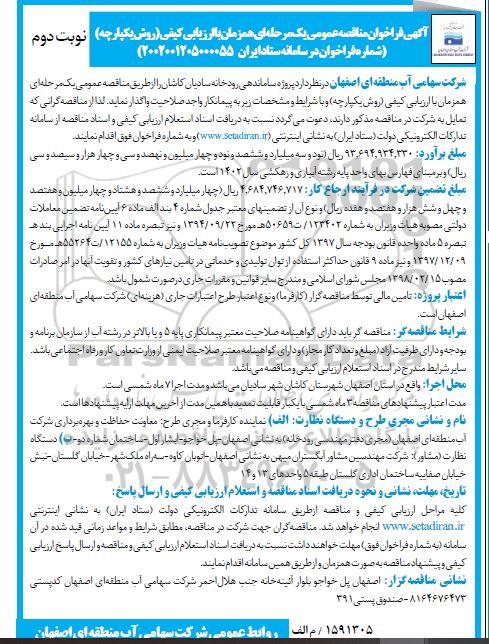 آگهی فراخوان مناقصه عمومی یک مرحله‌ای همزمان با ارزیابی کیفی (روش یکپارچه)
(شماره فراخوان در سامانه ستاد ایران 2002001205000055)
نوبت دوم
شرکت سهامی آب منطقه ای اصفهان در نظر دارد پروژه ساماندهی رودخانه سادیان کاشان را از طریق مناقصه عمومی یک مرحله‌ای
همزمان با ارزیابی کیفی (روش یکپارچه) و با شرایط و مشخصات زیر به پیمانکار واجد صلاحیت واگذار نماید. لذا از مناقصه‌گرانی که
تمایل به شرکت در مناقصه مذکور دارند، دعوت می گردد نسبت به دریافت اسناد استعلام ارزیابی کیفی و اسناد مناقصه از سامانه
تدارکات الکترونیکی دولت (ستاد ایران) به نشانی اینترنتی (www.setadiran.ir) و به شماره فراخوان فوق اقدام نمایند.
مبلغ برآورد: 93,694,934,330 ریال (نود و سه میلیارد و ششصد و نود و چهار میلیون و نهصد و سی و چهار هزار و سیصد و سی
ریال) و بر مبنای فهارس بهای واحد پایه رشته آبیاری و زهکشی سال 1402 است.
مبلغ تضمین شرکت در فرآیند ارجاع کار: 4,684,746,717 ریال (چهار میلیارد و ششصد و هشتاد و چهار میلیون و هفتصد
و چهل و شش هزار و هفتصد و هفده ریال) و نوع آن از تضمینهای معتبر جدول شماره 4 بند الف ماده 6 آیین نامه تضمین معاملات
دولتی مصوبه هیات وزیران به شماره 123402 / ت50659هـ مورخ 1394/09/22 و نیز تبصره ماده 11 آیین نامه اجرایی بند هـ
تبصره 5 ماده واحده قانون بودجه سال 1397 کل کشور موضوع تصویب‌نامه هیات وزیران به شماره 12155 / ت55264هـ مورخ
1397/12/09 و نیز ماده 9 قانون حداکثر استفاده از توان تولیدی و خدماتی در تامین نیازهای کشور و تقویت آنها در امر صادرات
مصوب 1398/02/15 مجلس شورای اسلامی و مندرج سایر قوانین و مقررات جاری در صورت شمول باشد.
اعتبار پروژه: تامین مالی توسط مناقصه گزار (کارفرما) و نوع اعتبار طرح اعتبارات جاری (هزینه‌ای) شرکت سهامی آب منطقه‌ای
اصفهان است.
شرایط مناقصه‌گر: مناقصه گر باید دارای گواهینامه صلاحیت معتبر پیمانکاری پایه 5 و یا بالاتر در رشته آب از سازمان برنامه و
بودجه و دارای ظرفیت آزاد (مبلغ و تعداد کار مجاز) و دارای گواهینامه معتبر صلاحیت ایمنی از وزارت تعاون کار و رفاه اجتماعی باشد.
سایر شرایط مندرج در اسناد استعلام ارزیابی کیفی و مناقصه می‌باشد.
محل اجرا: واقع در استان اصفهان شهرستان کاشان شهر سادیان می‌باشد و مدت اجرا 7 ماه شمسی است.
مدت اعتبار پیشنهادهای مناقصه 3 ماه شمسی با یکبار قابلیت تمدید با همین مدت از آخرین مهلت ارایه پیشنهادها است.
نام و نشانی مجری طرح و دستگاه نظارت: الف) نماینده کارفرما و مجری طرح: معاونت حفاظت و بهره‌برداری شرکت
آب منطقه‌ای اصفهان (مجری دفتر مهندسی رودخانه) به نشانی اصفهان-پل خواجو-آبشار اول-ساختمان شماره دو-ب) دستگاه
نظارت (مشاور): شرکت مهندسین مشاور آبگستران میهن به نشانی اصفهان-اتوبان کاوه-سه‌راه ملک‌شهر-خیابان گلستان-نبش
خیابان صفاییه ساختمان اداری گلستان طبقه 5 واحدهای 13 و 14
تاریخ، مهلت، نشانی و نحوه دریافت اسناد مناقصه و استعلام ارزیابی کیفی و ارسال پاسخ:
کلیه مراحل ارزیابی کیفی و مناقصه ازطریق سامانه تدارکات الکترونیکی دولت (ستاد ایران) به نشانی اینترنتی
www.setadiran.ir انجام خواهد شد. مناقصه‌گران جهت شرکت در مناقصه، مطابق شرایط و مواعد زمانی قید شده در آن
سامانه (به شماره فراخوان فوق) مهلت خواهند داشت نسبت به دریافت اسناد استعلام ارزیابی کیفی و مناقصه و ارسال پاسخ ارزیابی
کیفی و پیشنهاد مناقصه به صورت همزمان و از طریق همین سامانه اقدام نمایند.
نشانی مناقصه‌گزار: اصفهان پل خواجو بلوار آئینه‌خانه جنب هلال‌احمر شرکت سهامی آب منطقه‌ای اصفهان کدپستی
8164676473 - صندوق پستی 391
1591305 / م الف
روابط عمومی شرکت سهامی آب منطقه‌ای اصفهان